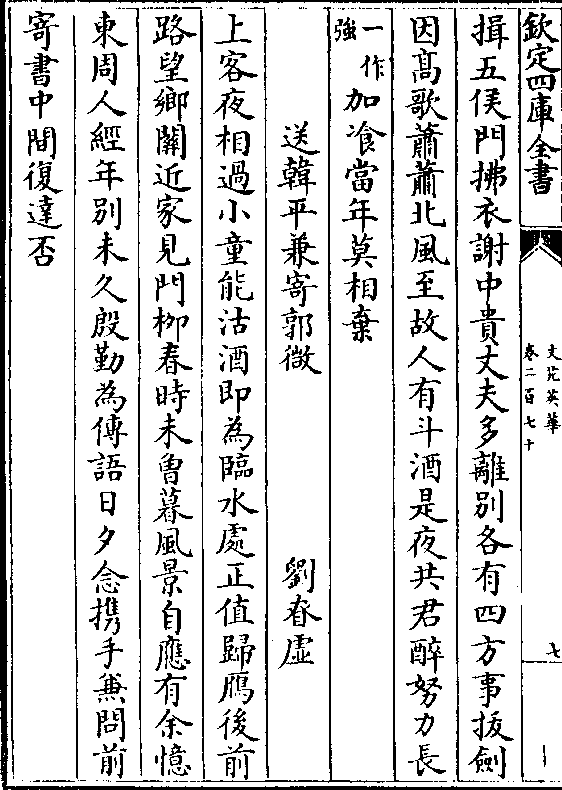 欽定四庫全書
文苑英華
卷二百七十
七
揖五侯門拂衣謝中貴丈夫多離別各有四方事拔劍
因髙歌蕭蕭北風至故人有斗酒是夜共君醉努力長
一作
強
加飡當年莫相棄
送韓平兼寄郭微
劉眘虚
上客夜相過小童能沽酒即為臨水處正值歸鴈後前
路望鄉關近家見門柳春時未曽暮風景自應有余憶
東周人經年別未久殷勤為傳語日夕念携手兼問前
寄書中間復達否